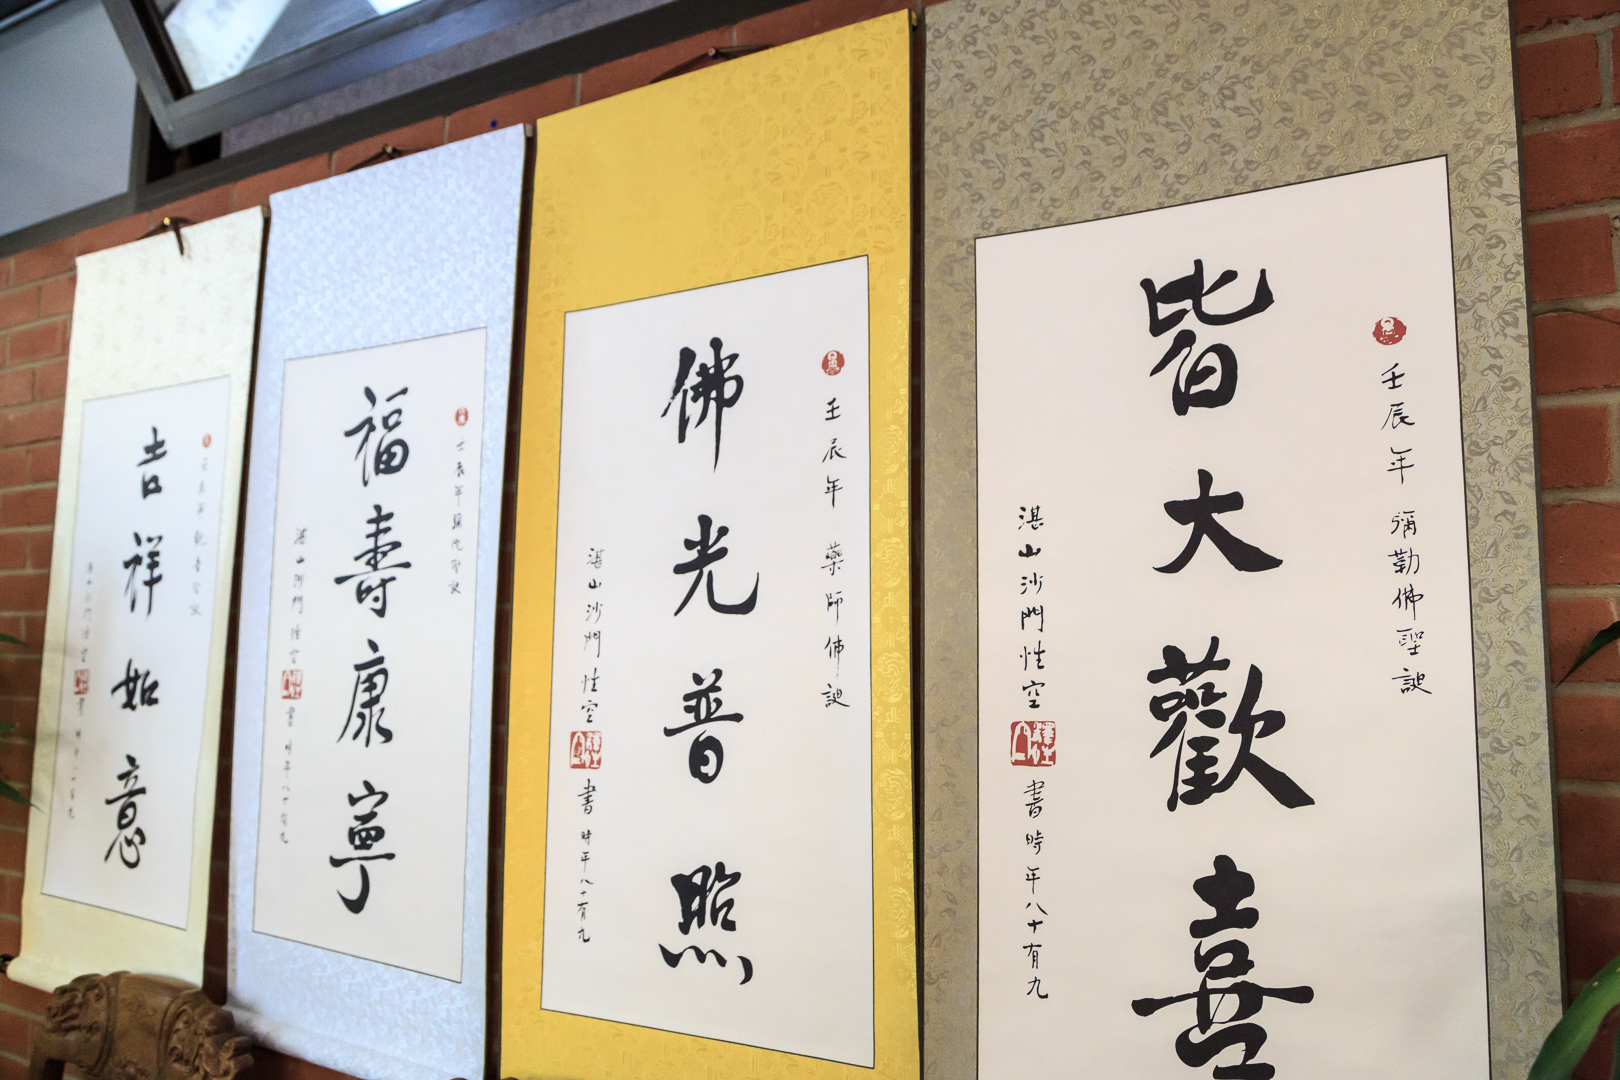 皆大歡喜
壬辰年 彌勒佛聖誕
湛山沙門性空
書時年八十有九
佛光普照
壬辰年 藥師佛誕
湛山沙門性空
書時年八十有九
福壽康寧
壬辰年
湛山沙門性空
書時年八十有九
吉祥如意